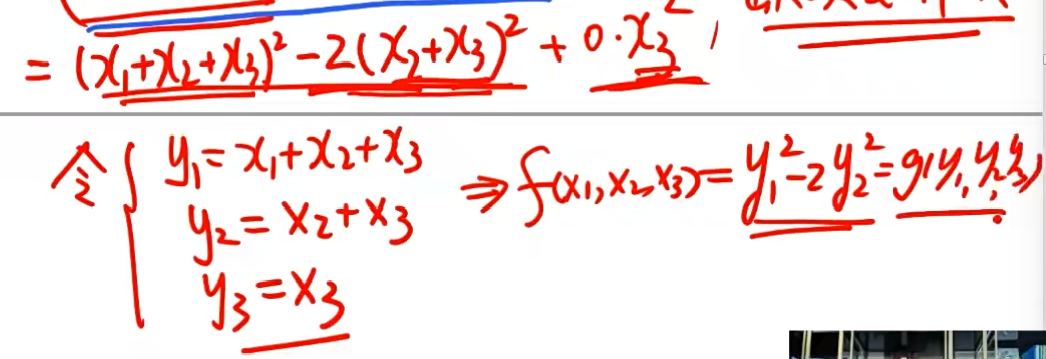 = (x₁+x₂+x₃)² -2(x₂+x₃)² + 0·x₃²,
令 { y₁=x₁+x₂+x₃
y₂=x₂+x₃
y₃=x₃
⇒ f(x₁,x₂,x₃)=y₁²-2y₂²=g(y₁,y₂,y₃)